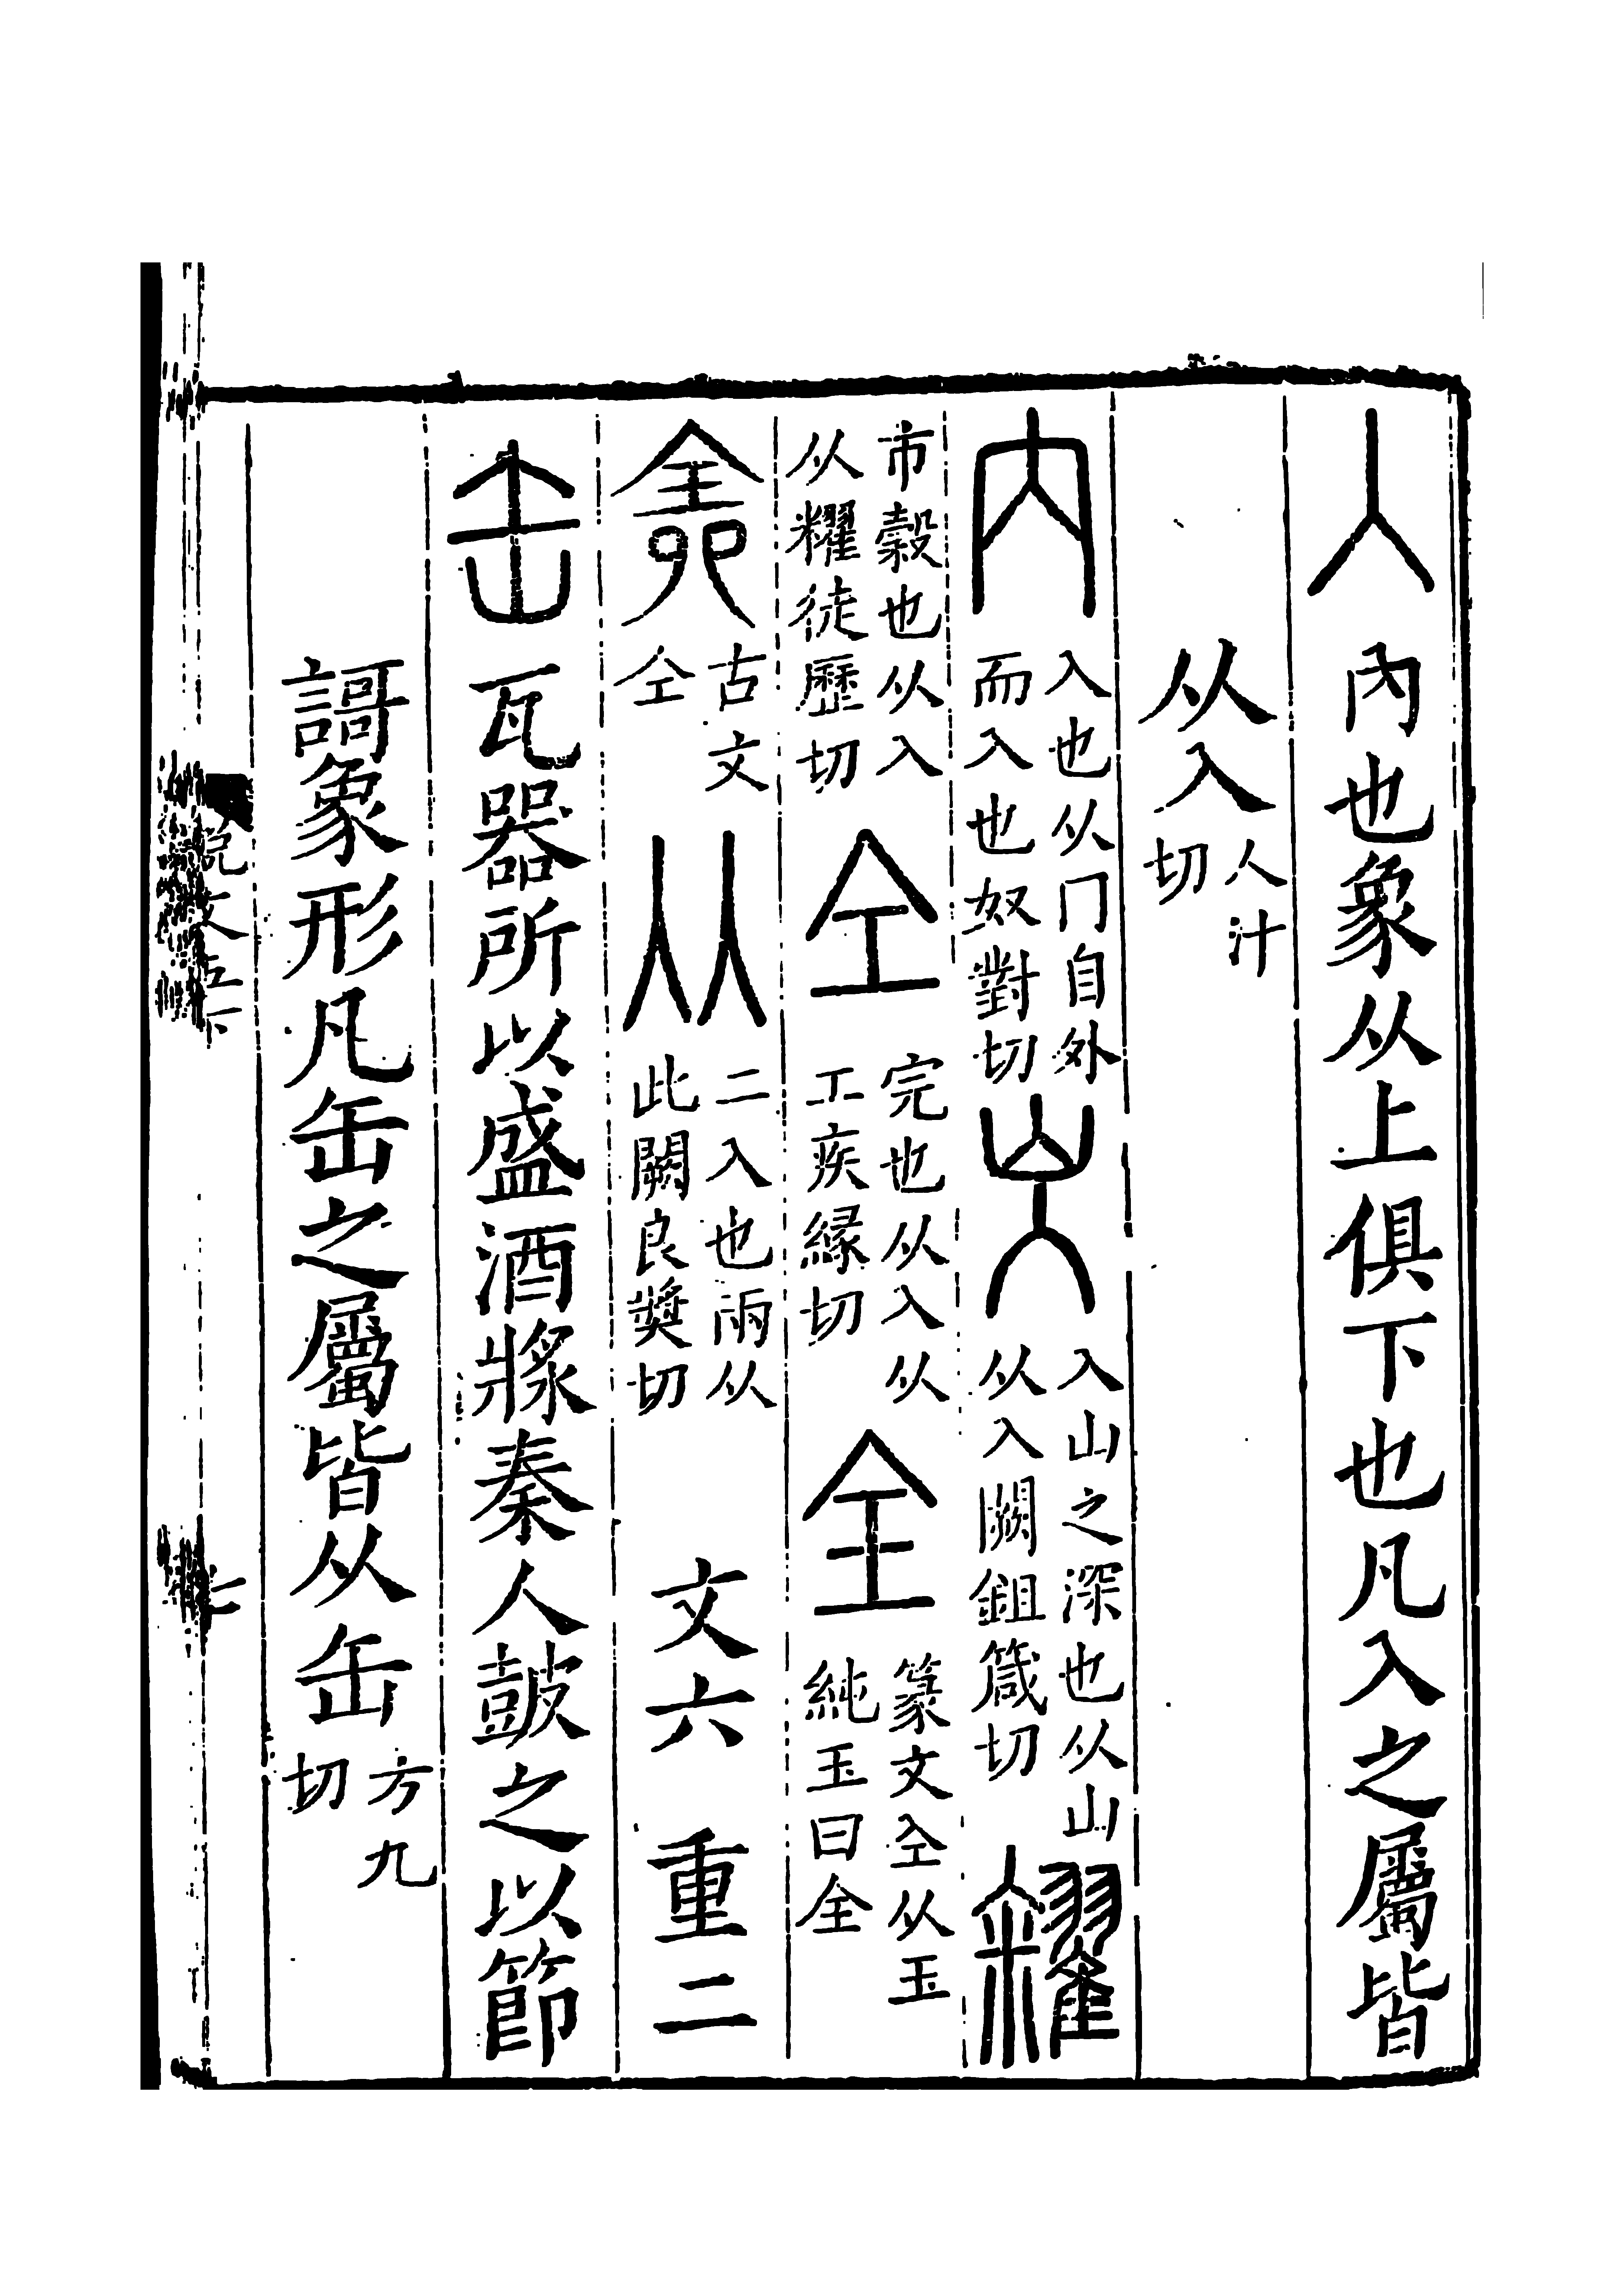 入 內也象从上俱下也凡入之屬皆
从入人汁切
內 入也从冂自外而入也奴對切 㞥 入山之深也从山从入闕鉏箴切 糴
市穀也从入从䊮徒歷切 仝 完也从入从工疾緣切 全 篆文仝从玉純玉曰全
古文仝 㒳 二入也兩从此闕良奬切 文六 重二
缶 瓦器所以盛酒𤖅秦人鼓之以節
謌象形凡缶之屬皆从缶方九切
說文五下